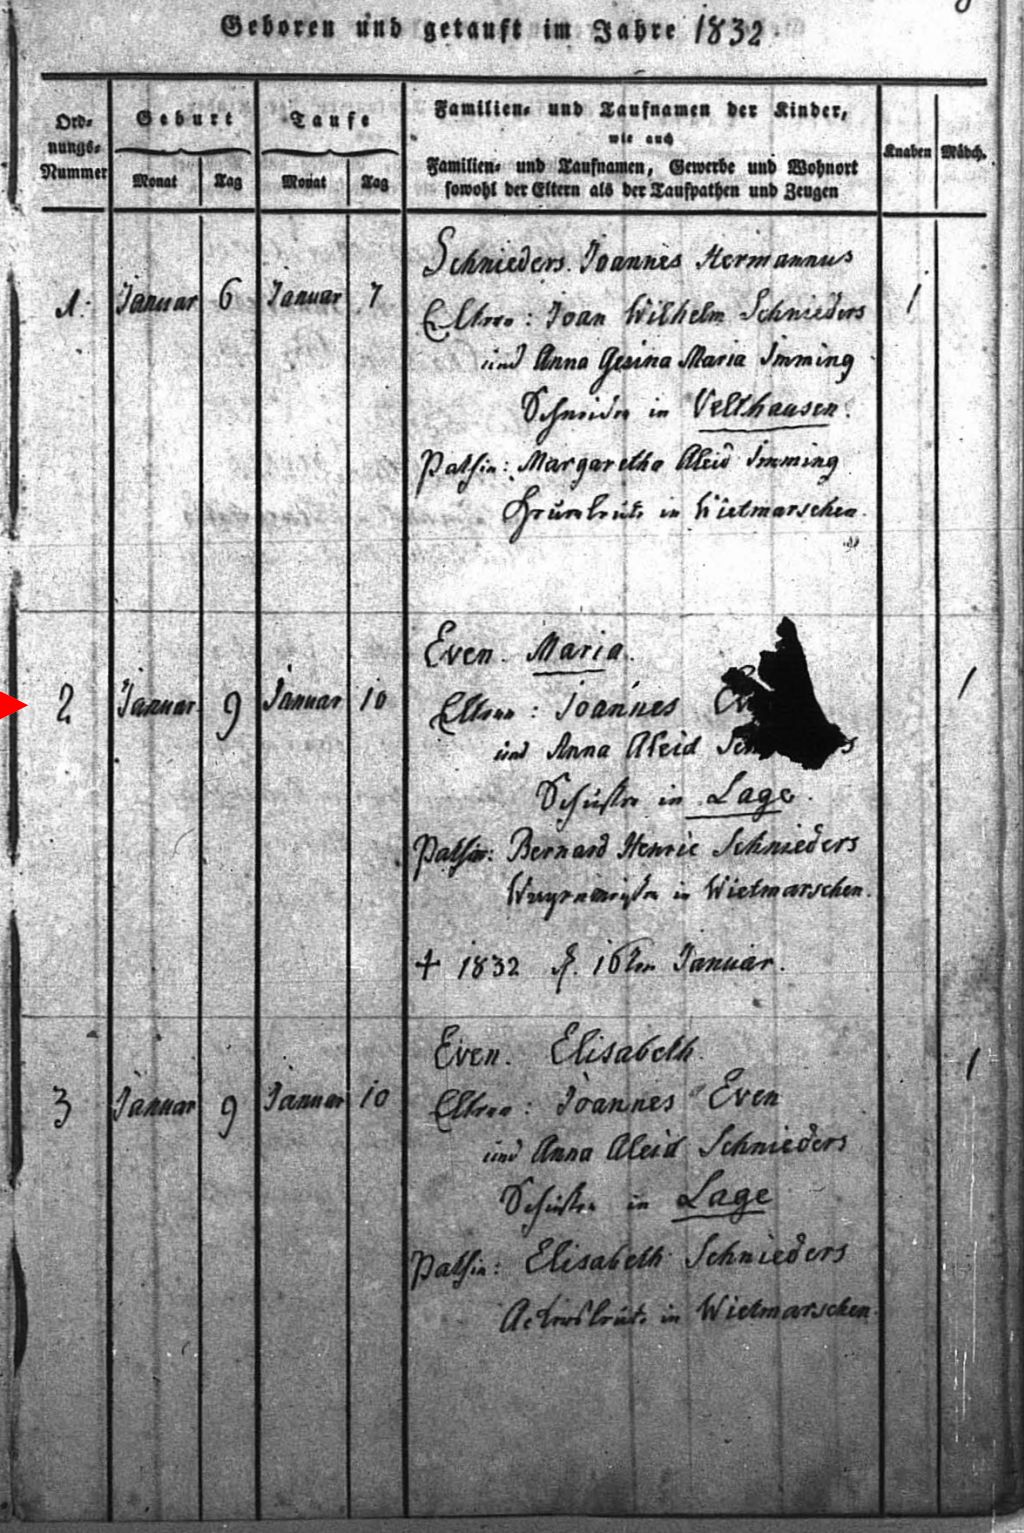 Geboren und getauft im Jahre 1832.
Ord-
nungs-
Nummer
Geburt
Taufe
Monat
Tag
Monat
Tag
Familien- und Taufnamen der Kinder,
wie auch
Familien- und Taufnamen, Gewerbe und Wohnort
sowohl der Eltern als der Taufpathen und Zeugen
Knaben
Mädch.
Schnieders. Joannes Hermannus
1. Januar 6 Januar 7
Eltern: Joan Wilhelm Schnieders 1
und Anna Gesina Maria Imming
Schneider in Velthausen.
Pathin: Margaretha Aleid Imming
in Wietmarschen.
Even. Maria.
2 Januar 9 Januar 10
Eltern: Joannes 1
und Anna Aleid
Schuster in Lage.
Pathe: Bernard Henric Schnieders
in Wietmarschen.
+ 1832 d. 16ten Januar.
Even. Elisabeth.
3 Januar 9 Januar 10
Eltern: Joannes Even 1
und Anna Aleid Schnieders
Schuster in Lage
Pathin: Elisabeth Schnieders
Ackersleute in Wietmarschen.